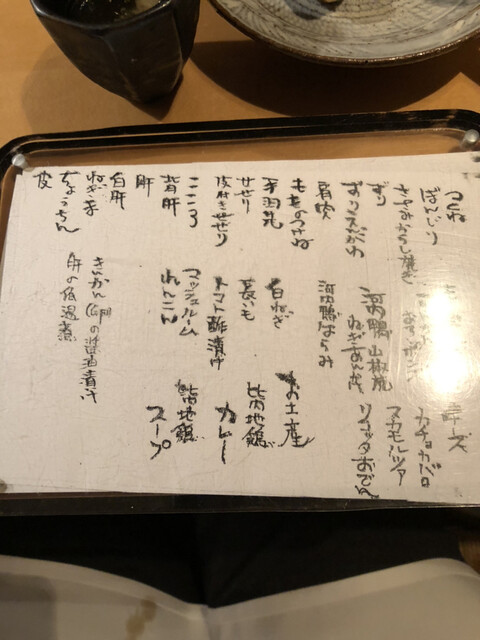 つくね
ぼんじり
ささみからし焼き
ずり
ずりえんがわ
肩肉
もものつけね
手羽先
せせり
皮付きせせり
こころ
背肝
肝
白肝
ねぎま
ちょうちん
皮
河内鴨 山椒焼
河内鴨ばらみ
白ねぎ
長いも
トマト酢漬け
マッシュルーム
れんこん
きんかん(卵)の醤油漬け
肝の低温煮
チーズ
カチョカバロ
スカモルツァ
リコッタおでん
お土産
比内地鶏
カレー
比内地鶏
スープ